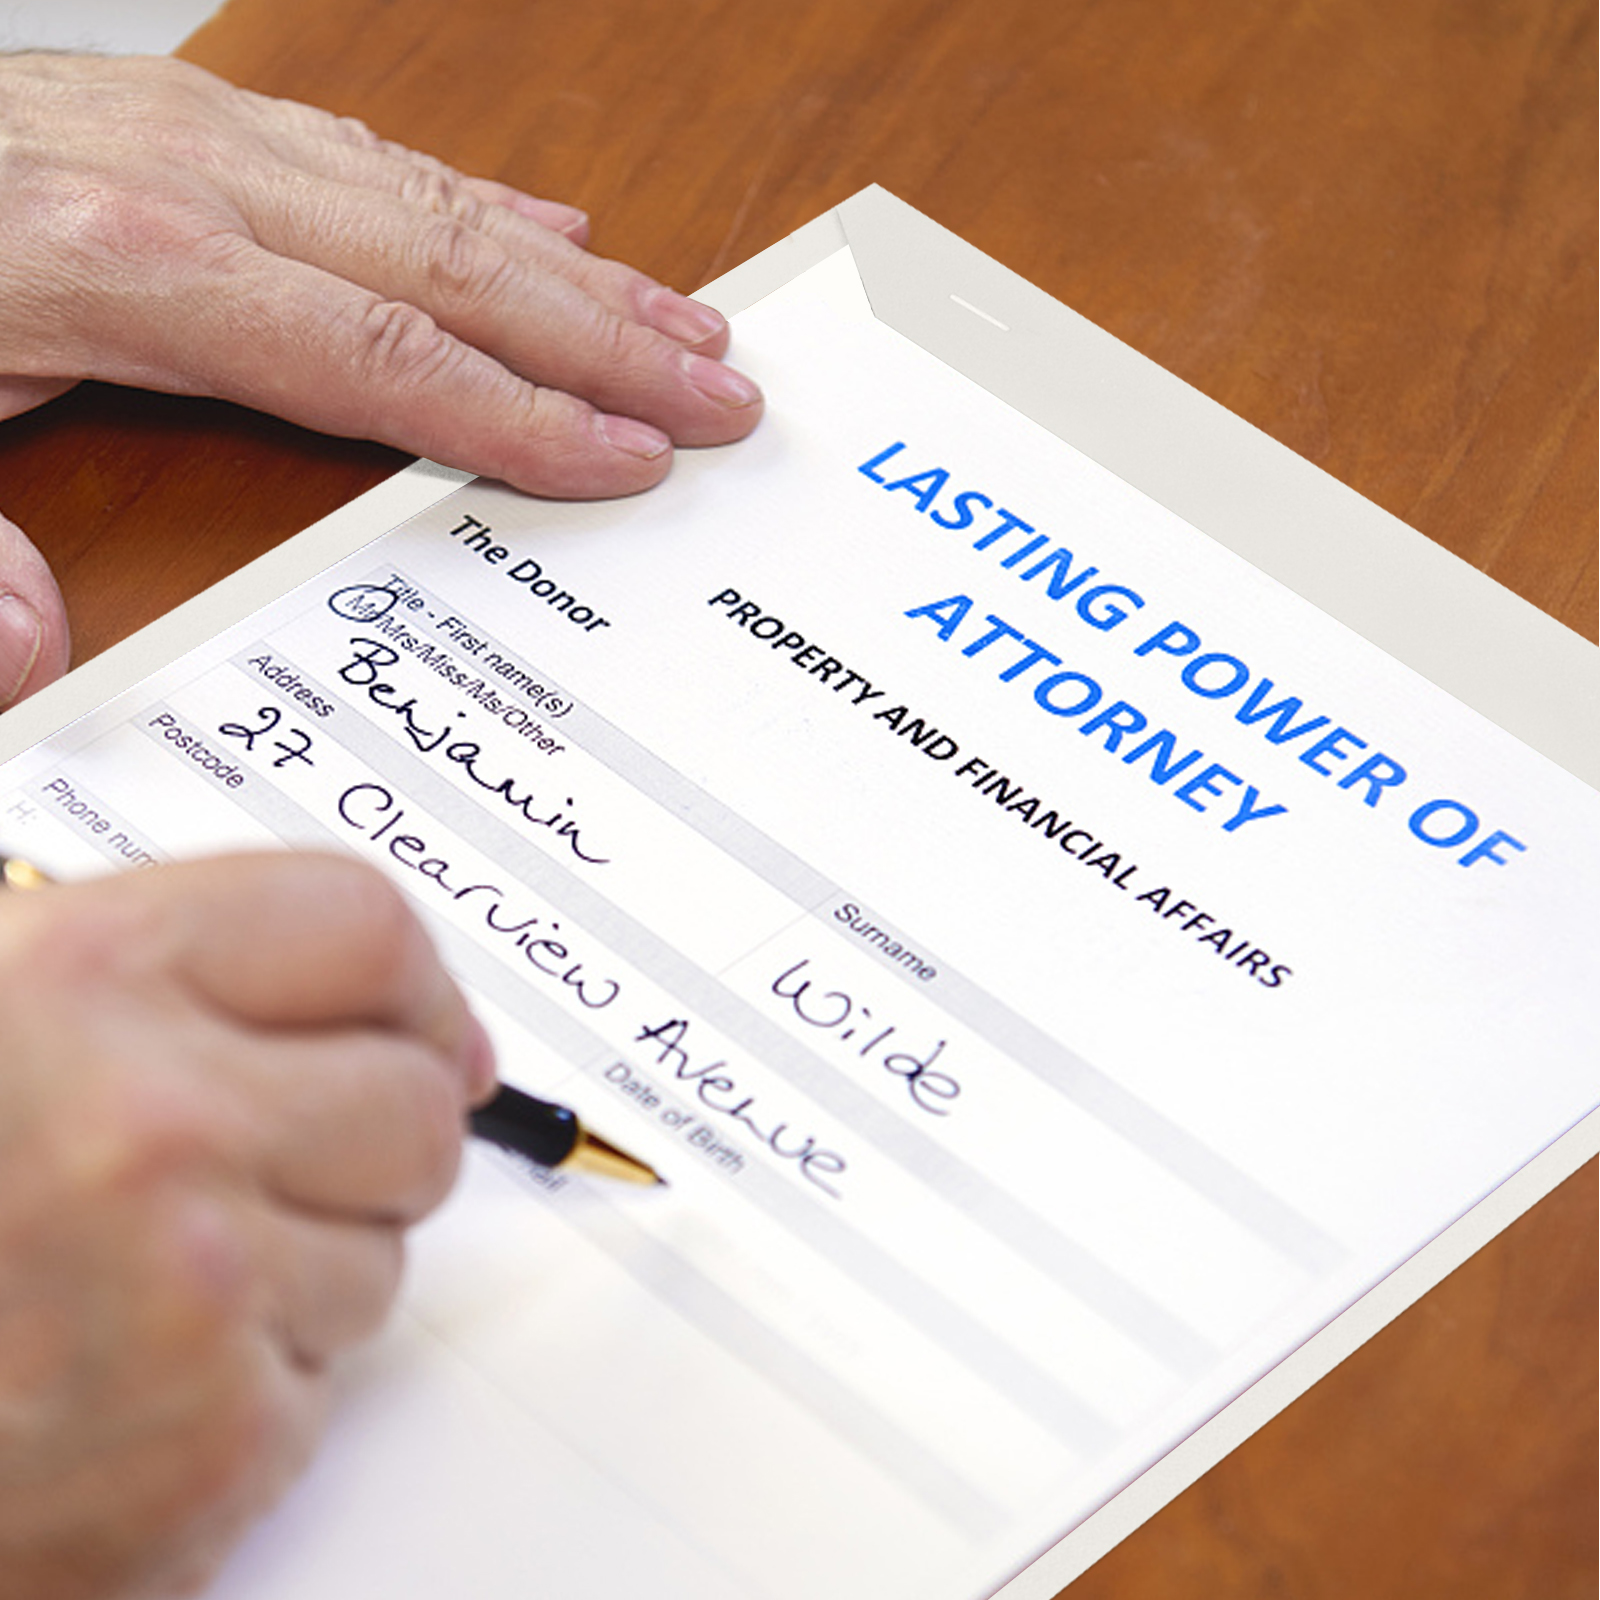 LASTING POWER OF
ATTORNEY
PROPERTY AND FINANCIAL AFFAIRS
The Donor
Title - First name(s)
Surname
Mr/Mrs/Miss/Ms/Other
Benjamin
Wilde
Address
27 Clearview Avenue
Postcode
Date of Birth
Phone
H: